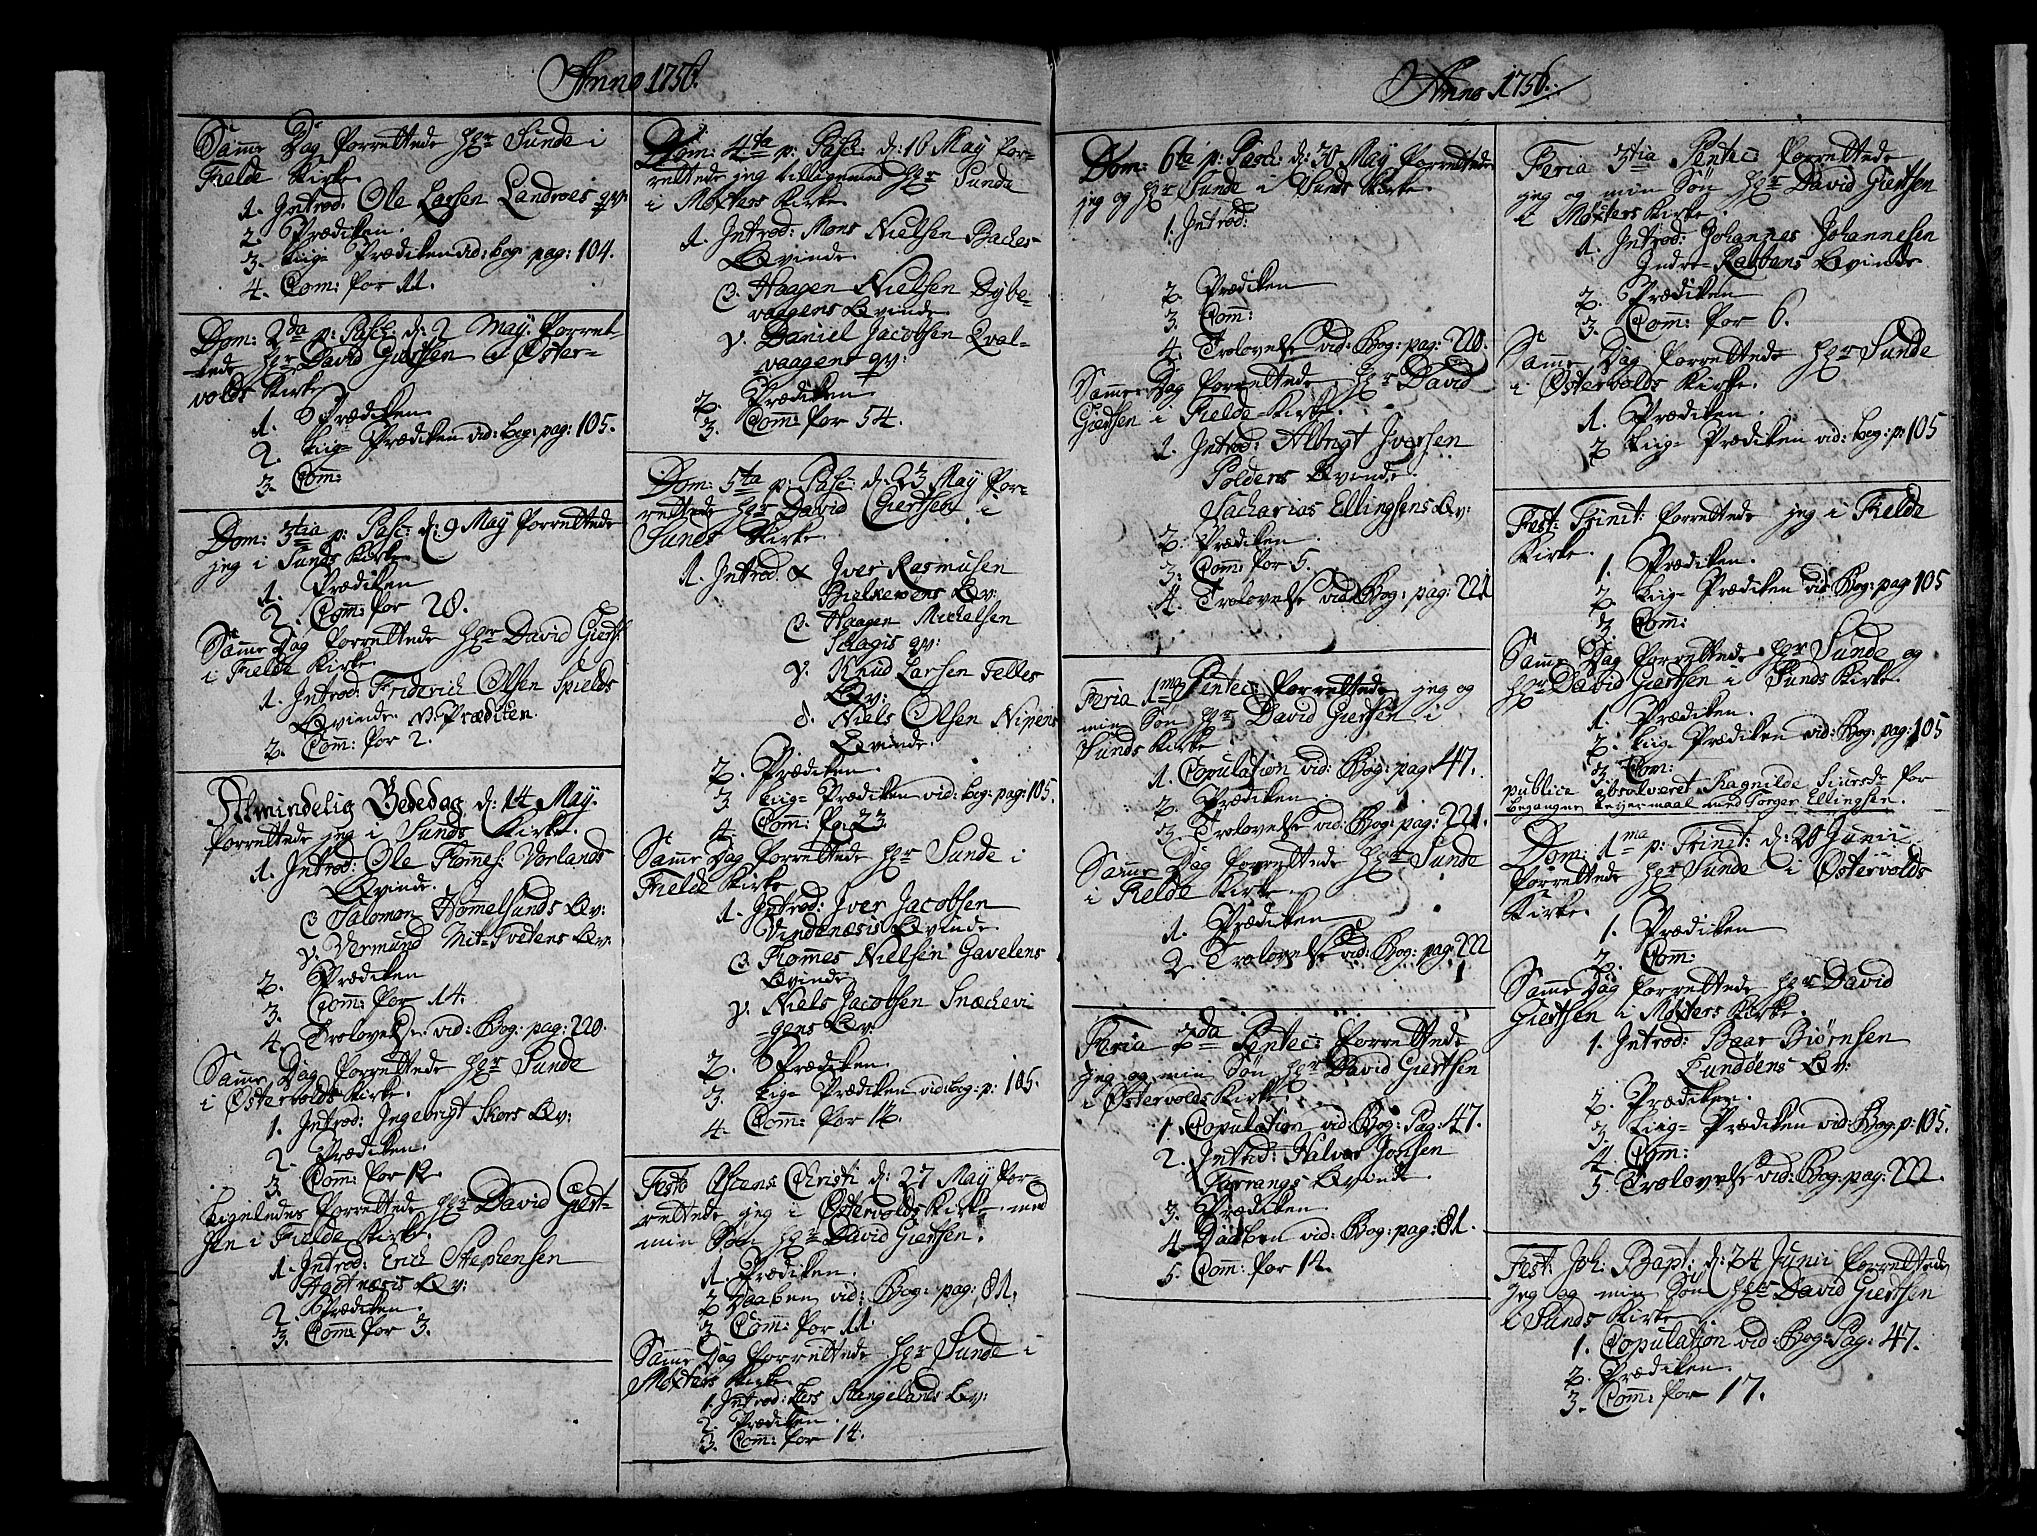 Anno 1756.
Samme Dag forrettede Hr Sunde i
Fielde Kirke
1. Introd: Ole Larsen Landroes qv:
2. Prædiken.
3. Liig- Prædiken vid: bog: pag: 104.
4. Com: for 11.
Dom: 2da p: Pasc: d: 2 May forret-
tede Hr David Giertsen i Øster-
volds Kirke
1. Prædiken.
2. Liig- Prædiken vid: bog: pag: 105.
3. Com:
Dom: 3tia p: Pasc: d: 9 May forrettede
jeg i Sunds Kirke
1. Prædiken
2. Com: for 28.
Samme Dag forrettede Hr David Gierts:
i Fielde Kirke
1. Introd: Friderich Olsen Spields
Qvinde. N. Prædiken.
2. Com: for 2.
Almindelig Bededag d: 14 May.
forrettede jeg i Sunds Kirke.
1. Introd: Ole Thomes: Vorlands
Qvinde.
β Salomon Homelsunds Qv:
γ. Vermund Mit-Tvetens Qv:
2. Prædiken
3. Com: for 14.
4. Trolovelse vid: Bog: pag: 220.
Samme Dag forrettede Hr Sunde
i Østervolds Kirke.
1. Introd: Ingebrigt Skors Qv:
2. Prædiken.
3. Com: for 12
Ligeledes forrettede Hr David Giert-
sen i Fielde Kirke.
1. Introd: Erich Stephensen
Agotnæsis Qv:
2. Prædiken.
3. Com: for 3.
Dom: 4ta p: Pasc: d: 16 May for-
rettede jeg tilligemed Hr Sunde
i Møxters Kirke
1. Introd: Mons Nielsen Backes
Qvinde
β. Haagen Nielsen Dybe-
vaagens Qvinde
γ. Daniel Jacobsen Qval-
vaagens qv:
2. Prædiken
3. Com: for 54.
Dom: 5ta p: Pasc: d: 23 May for-
rettede Hr David Giertsen i
Sunds Kirke
1. Introd. α Iver Rasmusen
Bielkerøens Qv:
β. Haagen Michelsen
Skagis qv:
γ. Knud Larsen Telles
Qv:
δ. Niels Olsen Nipens
Qvinde.
2. Prædiken.
3. Liig- Prædiken vid: bog: pag: 105.
4. Com: for 23
Samme Dag forrettede Hr Sunde i
Fielde Kirke
1. Introd: Iver Jacobsen
Vindenæsis Qvinde
β. Thommes Nielsen Gavelens
Qvinde
γ. Niels Jacobsen Snæckevi
gens Qv:
2. Prædiken.
3. Liig- Prædiken vid: bog: p: 105.
4. Com: for 12.
Festo Ascens: Christi d: 27 May for-
rettede jeg i Østervolds Kirke med
min Søn Hr David Giertsen.
1. Prædiken.
2 Daaben vid: Bog: pag: 81.
3 Com: for 11.
Samme Dag forrettede Hr Sunde i
Møxters Kirke
1. Introd: Lars Stangelands Qv:
2. Prædiken.
3. Com: for 14.
Anno 1756.
Dom: 6ta p: Pasc: d: 30 May forrettede
jeg og Hr Sunde i Sunds Kirke.
1. Introd:
2. Prædiken
3. Com:
4. Trolovelse vid: Bog: pag: 220.
Samme Dag forrettede Hr David
Giertsen i Fielde Kirke.
1. Introd: Albrigt Iversen
Polderis Qvinde
Zacharias Ellingsens Qv:
2. Prædiken
3. Com: for 5.
4. Trolovelse vid: Bog: pag: 221
Feria 1ma Pentec: forrettede jeg og
min Søn Hr David Giertsen i
Sunds Kirke
1. Copulation vid: Bog: pag: 47.
2. Prædiken.
3. Trolovelse vid: Bog: pag: 221.
Samme Dag forrettede Hr Sunde
i Fielde Kirke
1. Prædiken
2. Trolovelse vid: Bog: pag: 222
Feria 2da Pentec: forrettede
jeg og min Søn Hr David Giertsen
i Østervolds Kirke
1. Copulation vid: Bog: Pag: 47.
2. Introd: Halvor Johsen
Forrangs Qvinde
3. Prædiken
4. Daaben vid: Bog: pag: 81.
5. Com: for 12.
Feria 3tia Pentec: forrettede
jeg og min Søn Hr David Giertsen
i Møxters Kirke.
1. Introd: Johannes Johannesen
Indre- Kalvens Qvinde
2. Prædiken
3. Com: for 6.
Samme Dag forrettede Hr Sunde
i Østervolds Kirke.
1. Prædiken.
2 Liig- Prædiken vid: bog: p: 105
Fest: Trinit: forrettede jeg i Fielde
Kirke.
1. Prædiken.
2. Liig- Prædiken vid: Bog: pag 105
3. Com:
Samme Dag forrettede Hr Sunde og
Hr David Giertsen i Sunds Kirke
1. Prædiken.
2. Liig- Prædiken vid: Bog: pag: 105
3. Com:
publice absolveret Ragnilde Siursdr for
begangne Leyermaal med Torger Ellingsen.
Dom: 1ma p: Trinit: d: 20 Junii
forrettede Hr Sunde i Østervolds
Kirke.
1. Prædiken
2. Com:
Samme Dag forrettede Hr David
Giertsen i Møxters Kirke.
1. Introd: Baar Biørnsen
Lundøens Qv:
2. Prædiken.
3. Liig- Prædiken vid: Bog: p: 105.
4. Com:
5. Trolovelse vid: Bog: pag: 222.
Fest: Joh: Bapt: d: 24 Junii forrettede
jeg og min Søn Hr David Giertsen
i Sunds Kirke
1. Copulation vid: Bog: Pag: 47.
2. Prædiken.
3. Com: for 17.